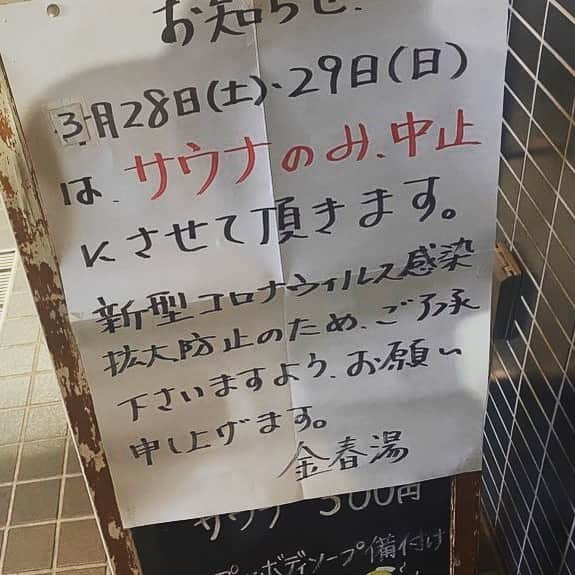 お知らせ.
3月28日(土)・29日(日)
は、サウナのみ、中止
とさせて頂きます。
新型コロナウィルス感染
拡大防止のため、ご了承
下さいますよう、お願い
申し上げます。
金春湯
サウナ 300円
ボディソープ備付け